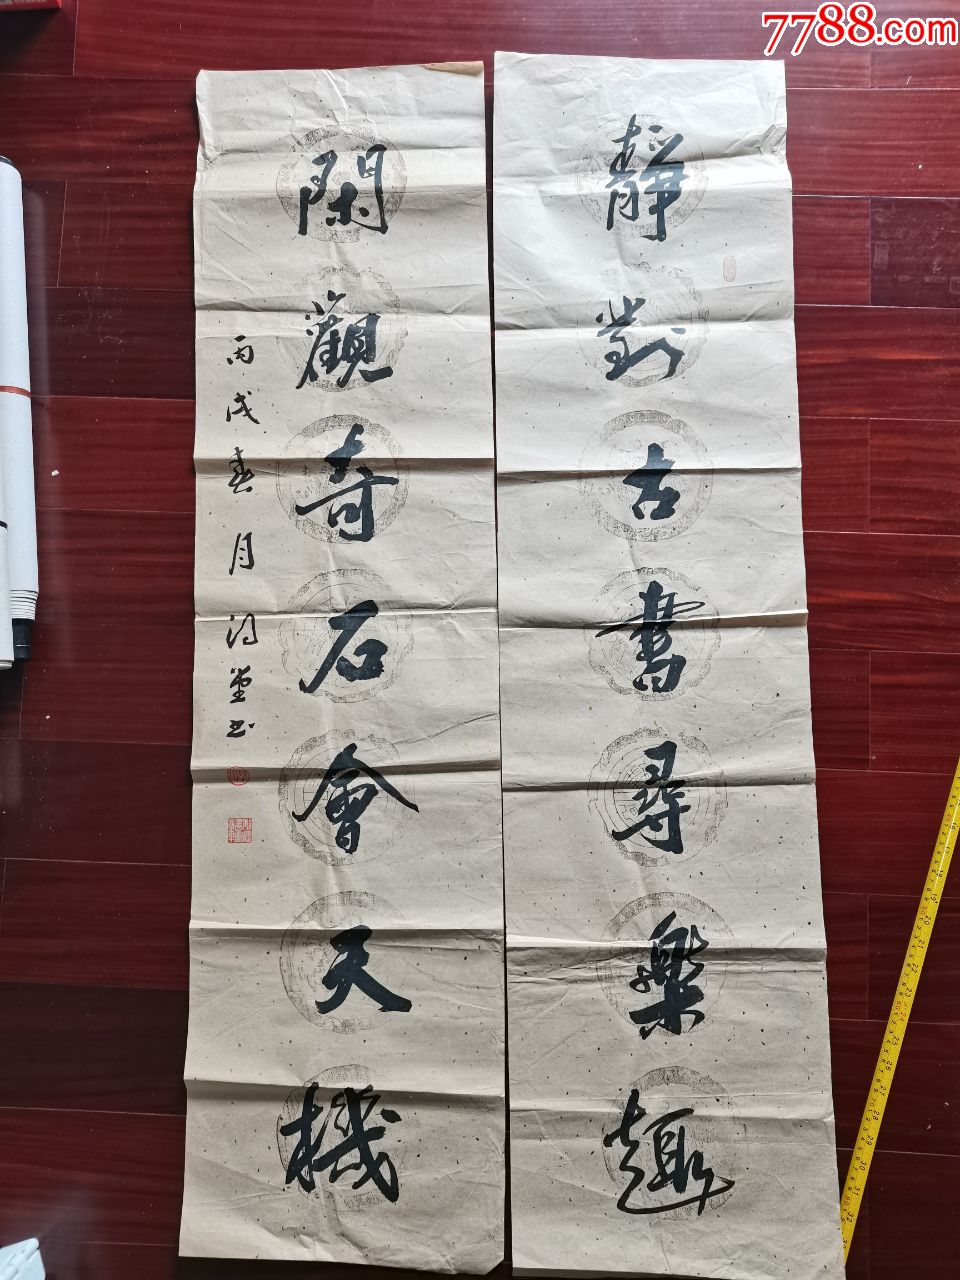 7788.com
靜對古書尋樂趣
閑觀奇石會天機
丙戌春月